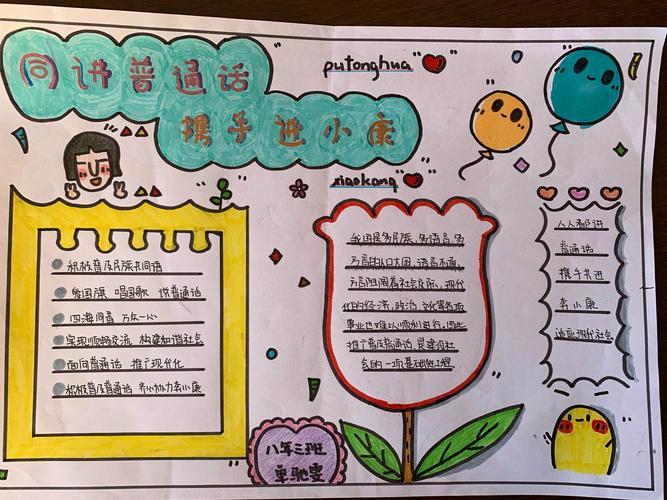 同讲普通话
putonghua
携手进小康
xiaokang
积极普及民族共同语
爱国旗 唱国歌 说普通话
四海同音 万众一心
实现顺畅交流 构建和谐社会
面向普通话 推广现代化
积极普及普通话 齐心协力奔小康
我国是多民族、多语言、多
方言的人口大国,语言不通、
方言阻隔着社会交际、现代
化的经济、政治、文化等各项
事业也难以顺利进行,因此
推广普及普通话,是建设社
会的一项基础性工程
人人都讲
普通话
携手共进
奔小康
适应现代社会
八年三班
单驰雯